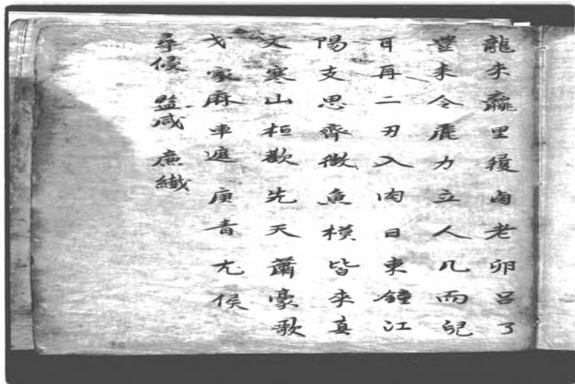 龍耒羸里履鹵老卯呂了
豊耒令鹿力立人几而兒
耳再二刃入肉日東鍾江
陽支思齊微魚模皆來真
文寒山桓歡先天蕭豪歌
戈家麻車遮庚青尤侯
尋侵 監咸 廉纖